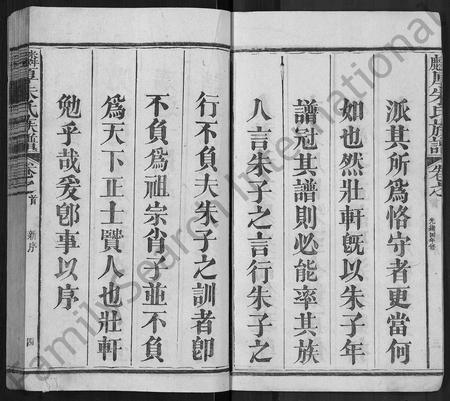 麟厚朱氏族譜
卷之首
光緒四年修
派其所爲恪守者更當何
如也然壯軒旣以朱子年
譜冠其譜則必能率其族
人言朱子之言行朱子之
行不負夫朱子之訓者卽
不負爲祖宗肖子並不負
爲天下正士賢人也壯軒
勉乎哉爰卽事以序
麟厚朱氏族譜
卷之首
新序
四
FamilySearch International